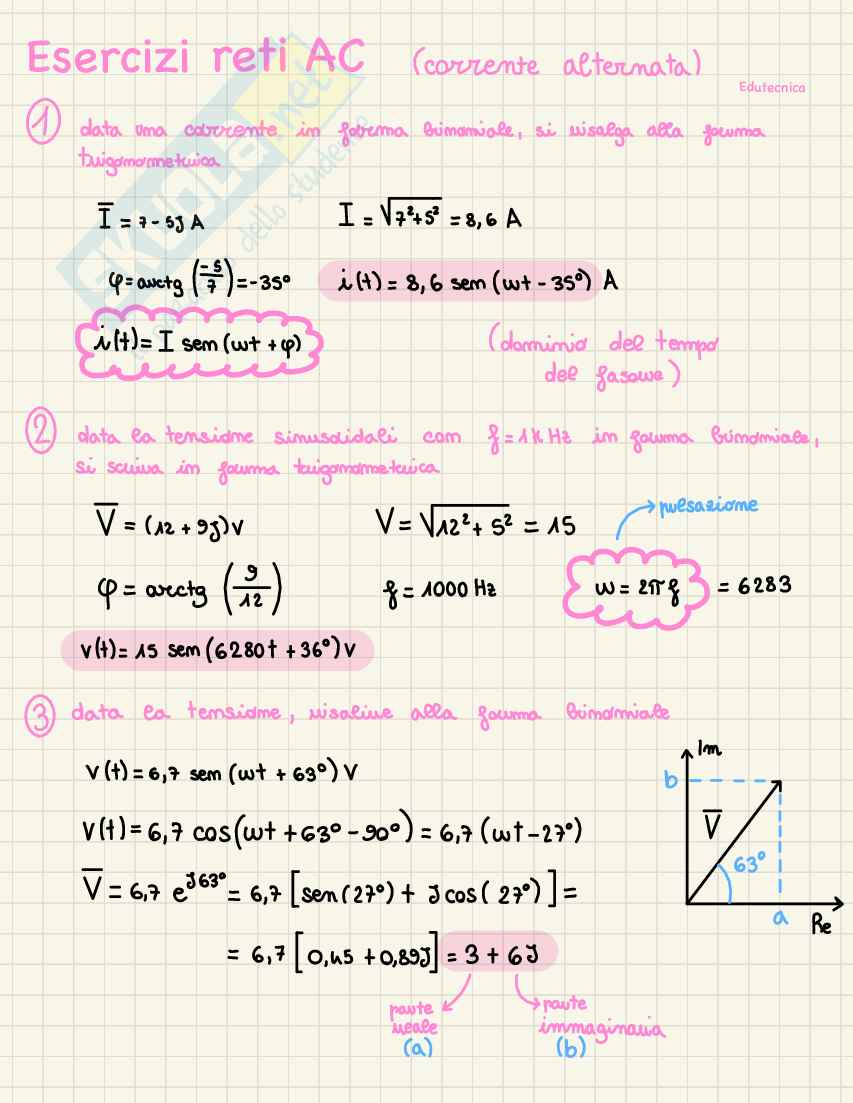 Esercizi reti AC (corrente alternata)
Edutecnica
① data una corrente in forma binomiale, si risalga alla forma
trigonometrica
I̅ = 7 - 5J A I = √(7²+5²) = 8,6 A
φ = arctg (-5/7) = -35° i(t) = 8,6 sen (ωt - 35°) A
i(t) = I sen (ωt + φ)
(dominio del tempo
del fasore)
② data la tensione sinusoidali con f = 1K Hz in forma binomiale,
si scriva in forma trigonometrica
pulsazione
V̅ = (12 + 9j) V V = √(12² + 5²) = 15
φ = arctg (9/12) f = 1000 Hz ω = 2π f = 6283
v(t) = 15 sen (6280t + 36°) V
③ data la tensione, risalire alla forma binomiale
v(t) = 6,7 sen (ωt + 63°) V
v(t) = 6,7 cos (ωt + 63° - 90°) = 6,7 (ωt - 27°)
V̅ = 6,7 e^J63° = 6,7 [sen (27°) + J cos ( 27°)] =
= 6,7 [0,45 + 0,89J] = 3 + 6J
parte reale (a)
parte immaginaria (b)
Im
b
V̅
63°
a
Re
SKUOLA.net
dello studente